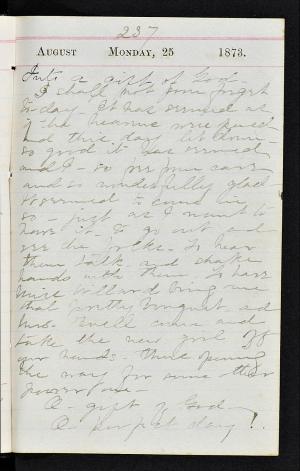 237
August Monday, 25 1873.
Tut's a gift of God -
I shall not soon forget
to-day - It has seemed as
if the heavens were opened
and this day let down -
so good it has seemed
and I - so free from care
and so wonderfully glad
It seemed to come in
so - just as I want to
have it. To go out and
see the folks - to hear
them talk - and shake
hands with them. To have
Willard bring me
that pretty bouquet - and
Mrs. come and
take the new girl off
our hands - thus opening
the way for some other
A - gift of God -
A - perfect day!